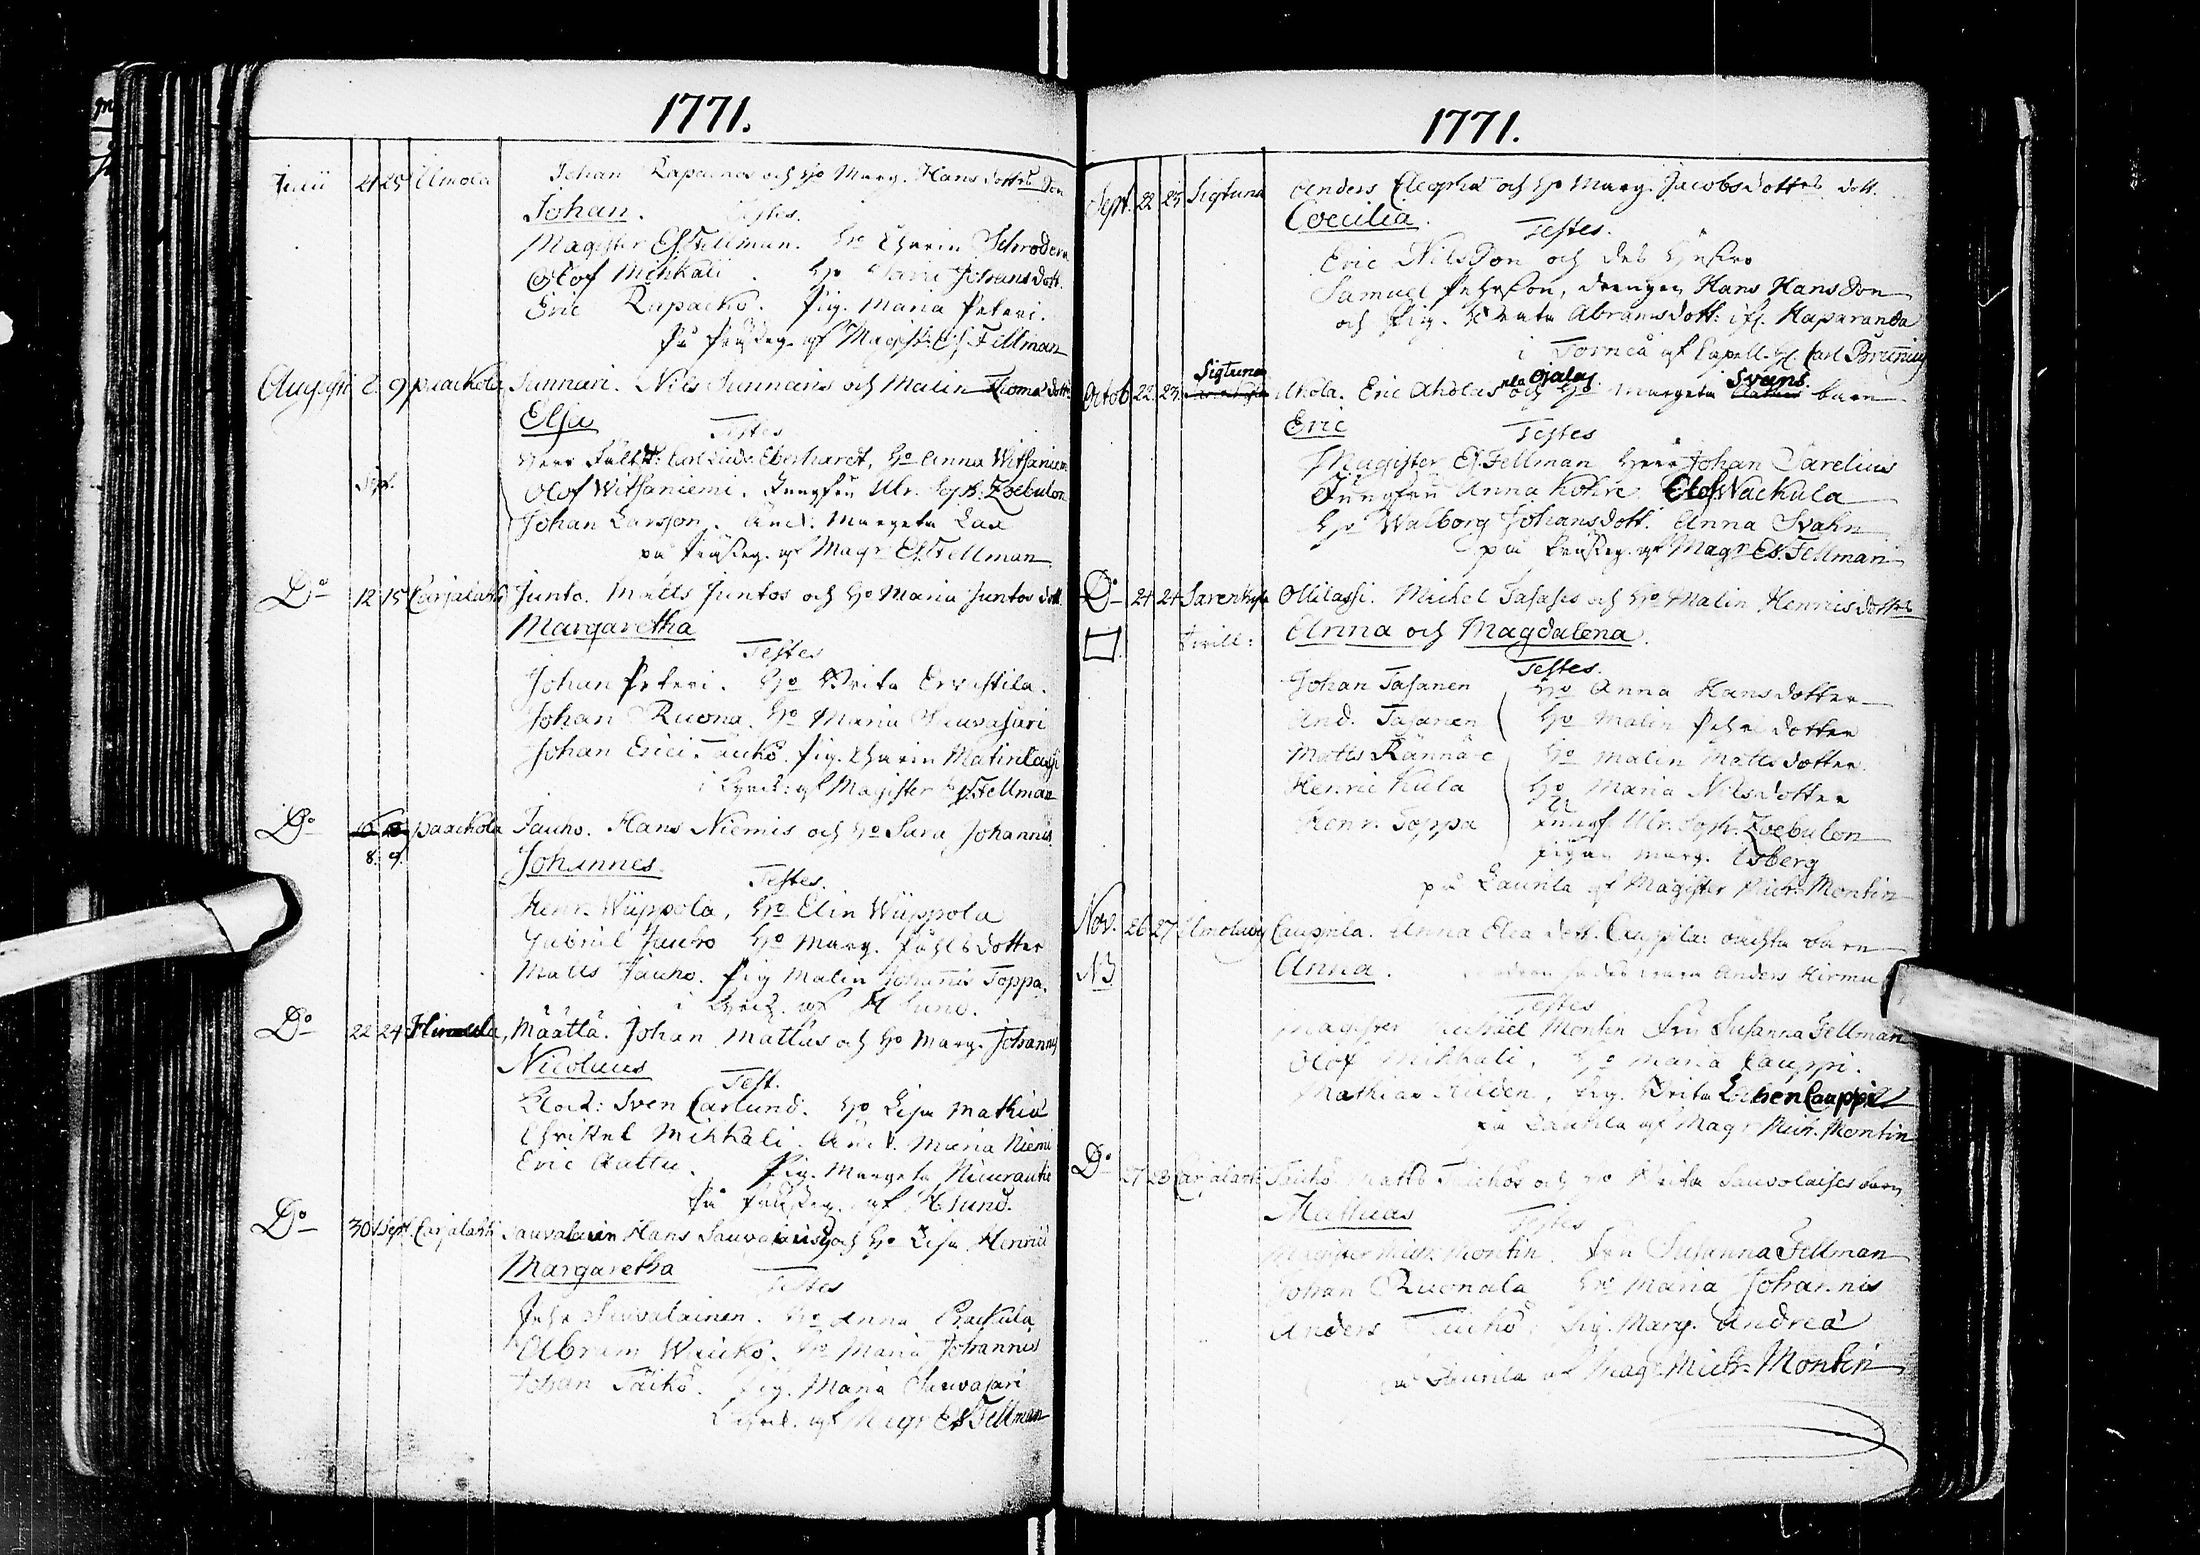 1771.
Junii 21 25 Ilmola Johan Rapainos och H:o Marg. Hans dotters Son
Johan. Testes.
Magister Es. Fellman. H:o Charin Schrodera
Olof Mihkali. H:o Johansdott.
Eric Rapacko. Pig. Maria Peteri.
På Prästeg. af Magist: Es Fellman
Augusti 8. 9 paackola Sunnari. Nils Sunnaris och Malin Thomæ dott.
Elsa
Testes
Herr Fält Carl Ludv. Eberhardt, H:o Anna Witsaniemi
Sept. Olof Witsaniemi. Jungfru Ulr. Soph. Zoebulon
Johan Larsson. And. Margeta Lax
på Prästeg. af Mag:r Es Fellman
D:o 12 15 Carjalahti Junto. Matts Juntos och H:o Maria Juntos dott
Margaretha
Testes
Johan Peteri. H:o Brita Ervastila.
Johan Ruona. H:o Maria Sauvasari
Johan Erici Taucko. Pig. Charin Matinlassi
i Kyrck: af Magister Es Fellman
D:o 8. 9. paackola Jauho. Hans Niemis och H:o Sara Johannis
Johannes.
Testes.
Henr. Wuppola, H:o Elin Wuppola
Gabriel Jauho H:o Marg. Påhlsdotter
Matts Jauho. Pig Malin Johannis Toppa.
i Kyrck. af H Sund.
D:o 22 24 Määttä. Johan Mattus och H:o Marg. Johannis
Nicolaus
Test.
Klock: Sven Carlund. H:o Lisa Mathiæ
Christel Mihkali. And. Maria Niemi
Eric Aattu. Pig. Margeta Niurautio
På Prästeg. af H Sund.
D:o 30 1 Sept. Carjalahti Sauvalain Hans Sauvalaises och H:o Lisa Henrici
Margaretha
Testes
Pehr Sauvalainen. H:o Anna Rackula
Abram Waucko. H:o Maria Johannis
Johan Täikö. Pig. Maria Sauvasari
af Mag:r Es Fellman
1771.
Sept. 22 23 Sigtuna Anders och H:o Marg. Jacobsdotters dott.
Coecilia.
Testes.
Eric Nilsson och des Hustru
Samuel Pehrsson, Drengen Hans Hansson
och Pig. Brita Abramsdott: ifr. Haparanda
i Torneå af Capell. H. Carl Brunius
Octob 22. 23. Sigtuna Ahola. Eric Aholas ela Ojalas och H:o Margeta Svans barn
Eric
Testes
Magister Es. Fellman Herr Johan Carelius
Jungfru Anna Kohre. Olof Nackula
H:o Walborg Johansdott. Anna Svahn
på Prästeg. af Mag:r Es. Fellman
D:o 24 24 Ollilassi. Michel Tasases och H:o Malin Henricsdotters
Tvill: Anna och Magdalena.
Testes.
Johan Tasanen H:o Anna Hansdotter
And. Tasanen H:o Malin Pehrsdotter
Matts Rännäre H:o Malin Mattsdotter
Henric Kula H:o Maria Nilsdotter
Henr. Toppa Jungf. Ulr. Soph. Zoebulon
Pigan Marg. Esberg
på Laurila af Magister Mich: Montin
Nov. 26 27 Cauppila. Anna Elia dott. Cauppilas oächta barn
NB Anna. vara Anders Hirmu
Testes
Magister Michael Montin Fru Susanna Fellman
Olof Mihkali. H:o Maria Cauppi.
Mathias Hilden, Pig. Brita Cauppi
på Laurila af Mag:r Mich. Montin
D:o 27 28 Carjalahti Täikö Matts Täikös och H:o Brita Sauvolaises barn
Mathias
Testes
Magister Mich. Montin. Fru Susanna Fellman
Johan Ruonala H:o Maria Johannis
Anders Täikö. Pig. Marg. Andreæ
på Laurila af Mag:r Mich. Montin